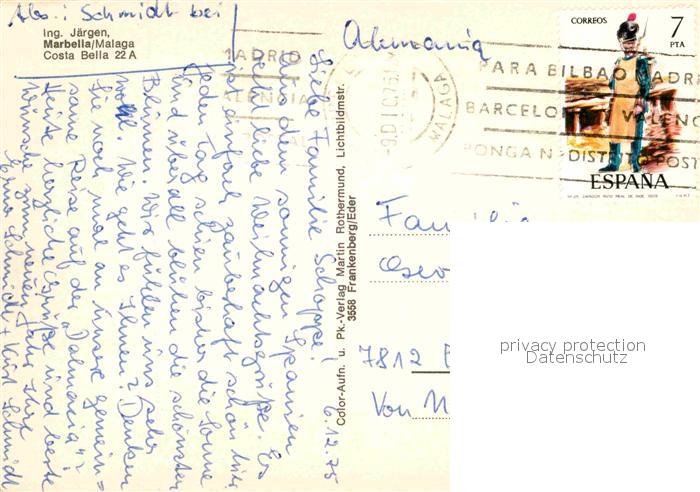 Abs.: Schmidt bei
Ing. Järgen,
Marbella/Malaga
Costa Bella 22 A
Alemania
CORREOS 7 PTA
ESPAÑA
MADRID
VALENCIA
9 DIC 75
MALAGA
PARA BILBAO MADRI
BARCELONA VALENC
PONGA Nº DISTRITO POST
6.12.75
Liebe Familie Schoppe!
Aus dem sonnigen Spanien
sehr liebe Weihnachtsgrüße. Es
ist einfach zauberhaft schön hier
jeden Tag schien bisher die Sonne
und überall blühen die schönsten
Blumen. Wir fühlen uns sehr
wohl. Wie geht es Ihnen? Denken
Sie noch mal an unsere gemein=
same Reise auf der "Dalmacija"?
Heute herzliche Grüße und beste
Wünsche zum neuen Jahr Ihre
Erna Schmidt + Kurt Schmidt
Color-Aufn. u. Pk.-Verlag Martin Rothermund, Lichtbildmstr.
3558 Frankenberg/Eder
Familie
7812
Von
privacy protection
Datenschutz